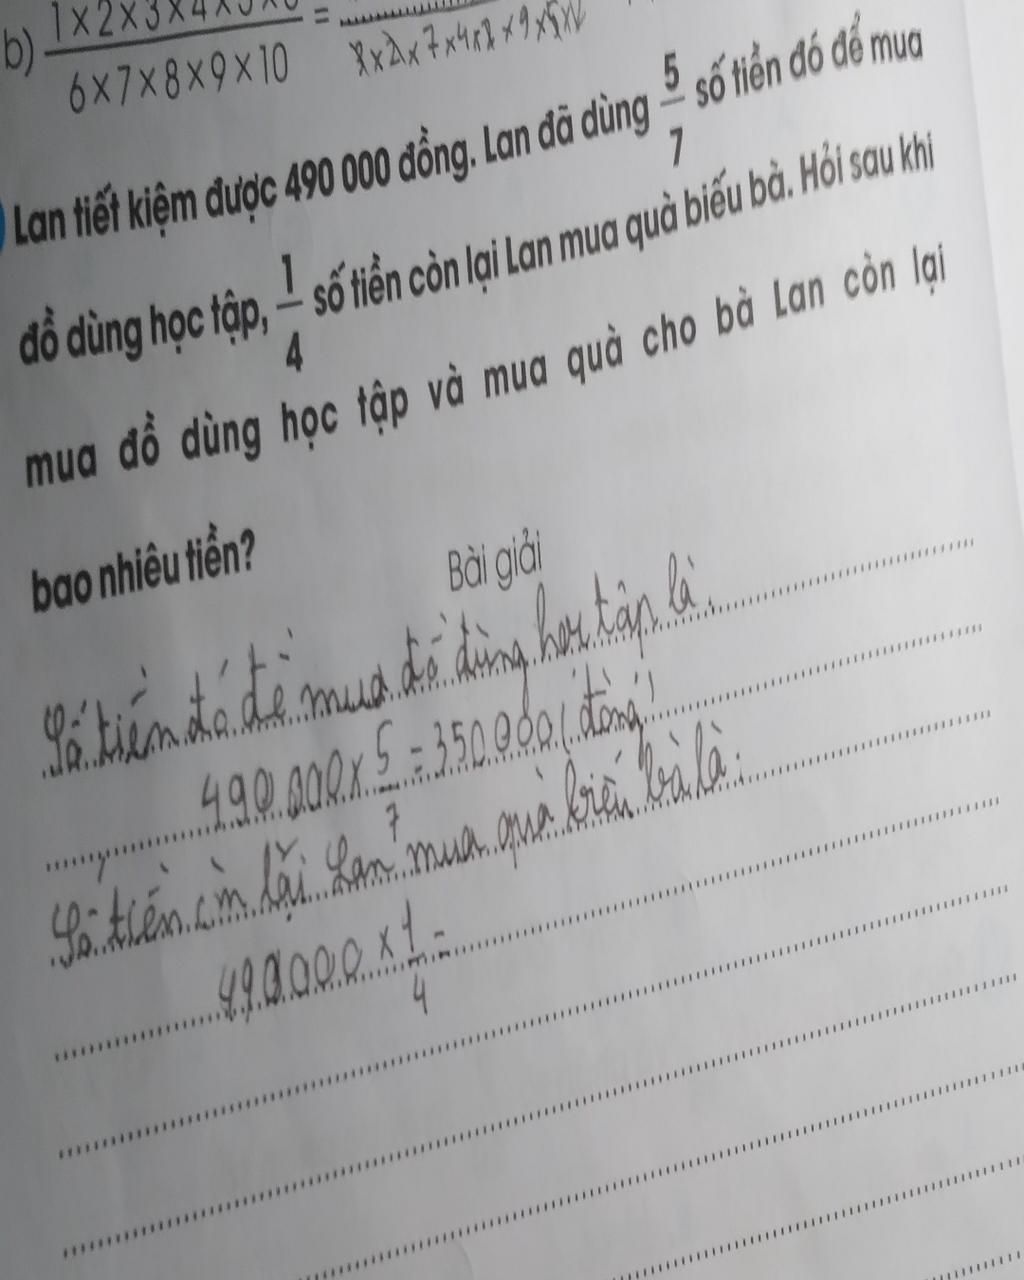 b) 1×2×3×4×5×6 / 6×7×8×9×10 = ........ / ×2×7×4×2×9×5×2
Lan tiết kiệm được 490 000 đồng. Lan đã dùng 5/7 số tiền đó để mua
đồ dùng học tập, 1/4 số tiền còn lại Lan mua quà biếu bà. Hỏi sau khi
mua đồ dùng học tập và mua quà cho bà Lan còn lại
bao nhiêu tiền?
Bài giải
Số tiền đó để mua đồ dùng học tập là:
490.000 × 5/7 = 350.000 (đồng)
Số tiền còn lại Lan mua quà biếu bà là:
490000 × 1/4 =